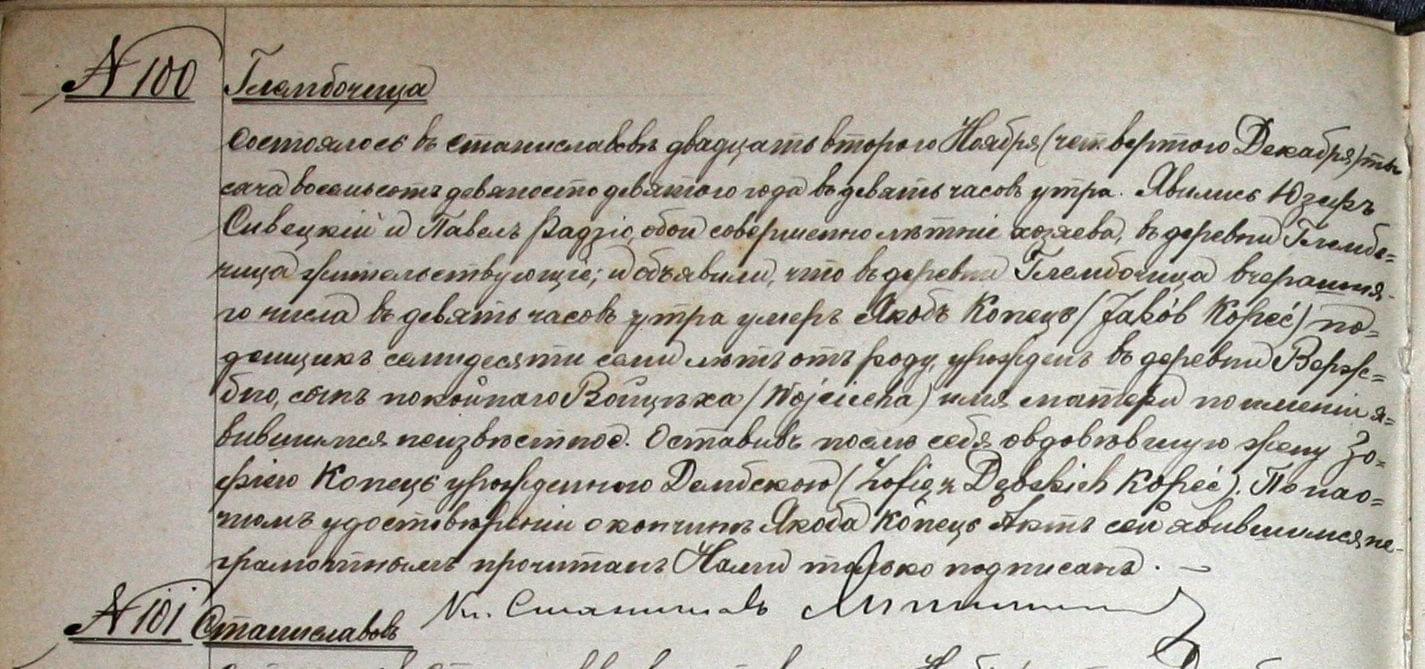 № 100 Глембочица
Состоялось въ Станиславовѣ двадцать второго Ноября (четвертого Декабря) ты-
сяча восемьсотъ девяносто девятого года въ девять часовъ утра. Явились Юзефъ
Сивецкій и Павелъ Радзіо, обои совершеннолѣтніе хозяева, въ деревни Глембо-
чица жительствующіе; и объявили, что въ деревни Глембочица вчерашня-
го числа въ девять часовъ утра умеръ Якобъ Копець (Jakób Kopeć) по-
денщикъ семидесяти семи лѣтъ отъ роду, урожденъ въ деревни Верж-
бно, сынъ покойнаго Войцѣха (Wojciecha) имя матери по имени я-
вившимся неизвѣстное. Оставивъ послѣ себя овдовѣвшую жену Зо-
фію Копець урожденную Дембскою (Zofię z Dębskich Kopeć). По нао-
чномъ удостовѣреніи о кончинѣ Якоба Копець Актъ сей явившимся не-
грамотнымъ прочитанъ Нами только подписанъ. —
Кс. Станиславъ
№ 101 Станиславовъ